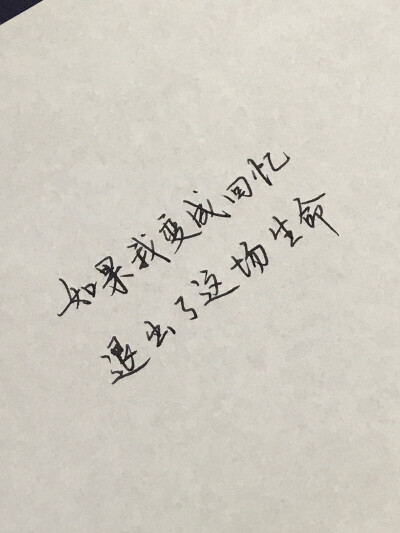 如果我变成回忆
退出了这场生命